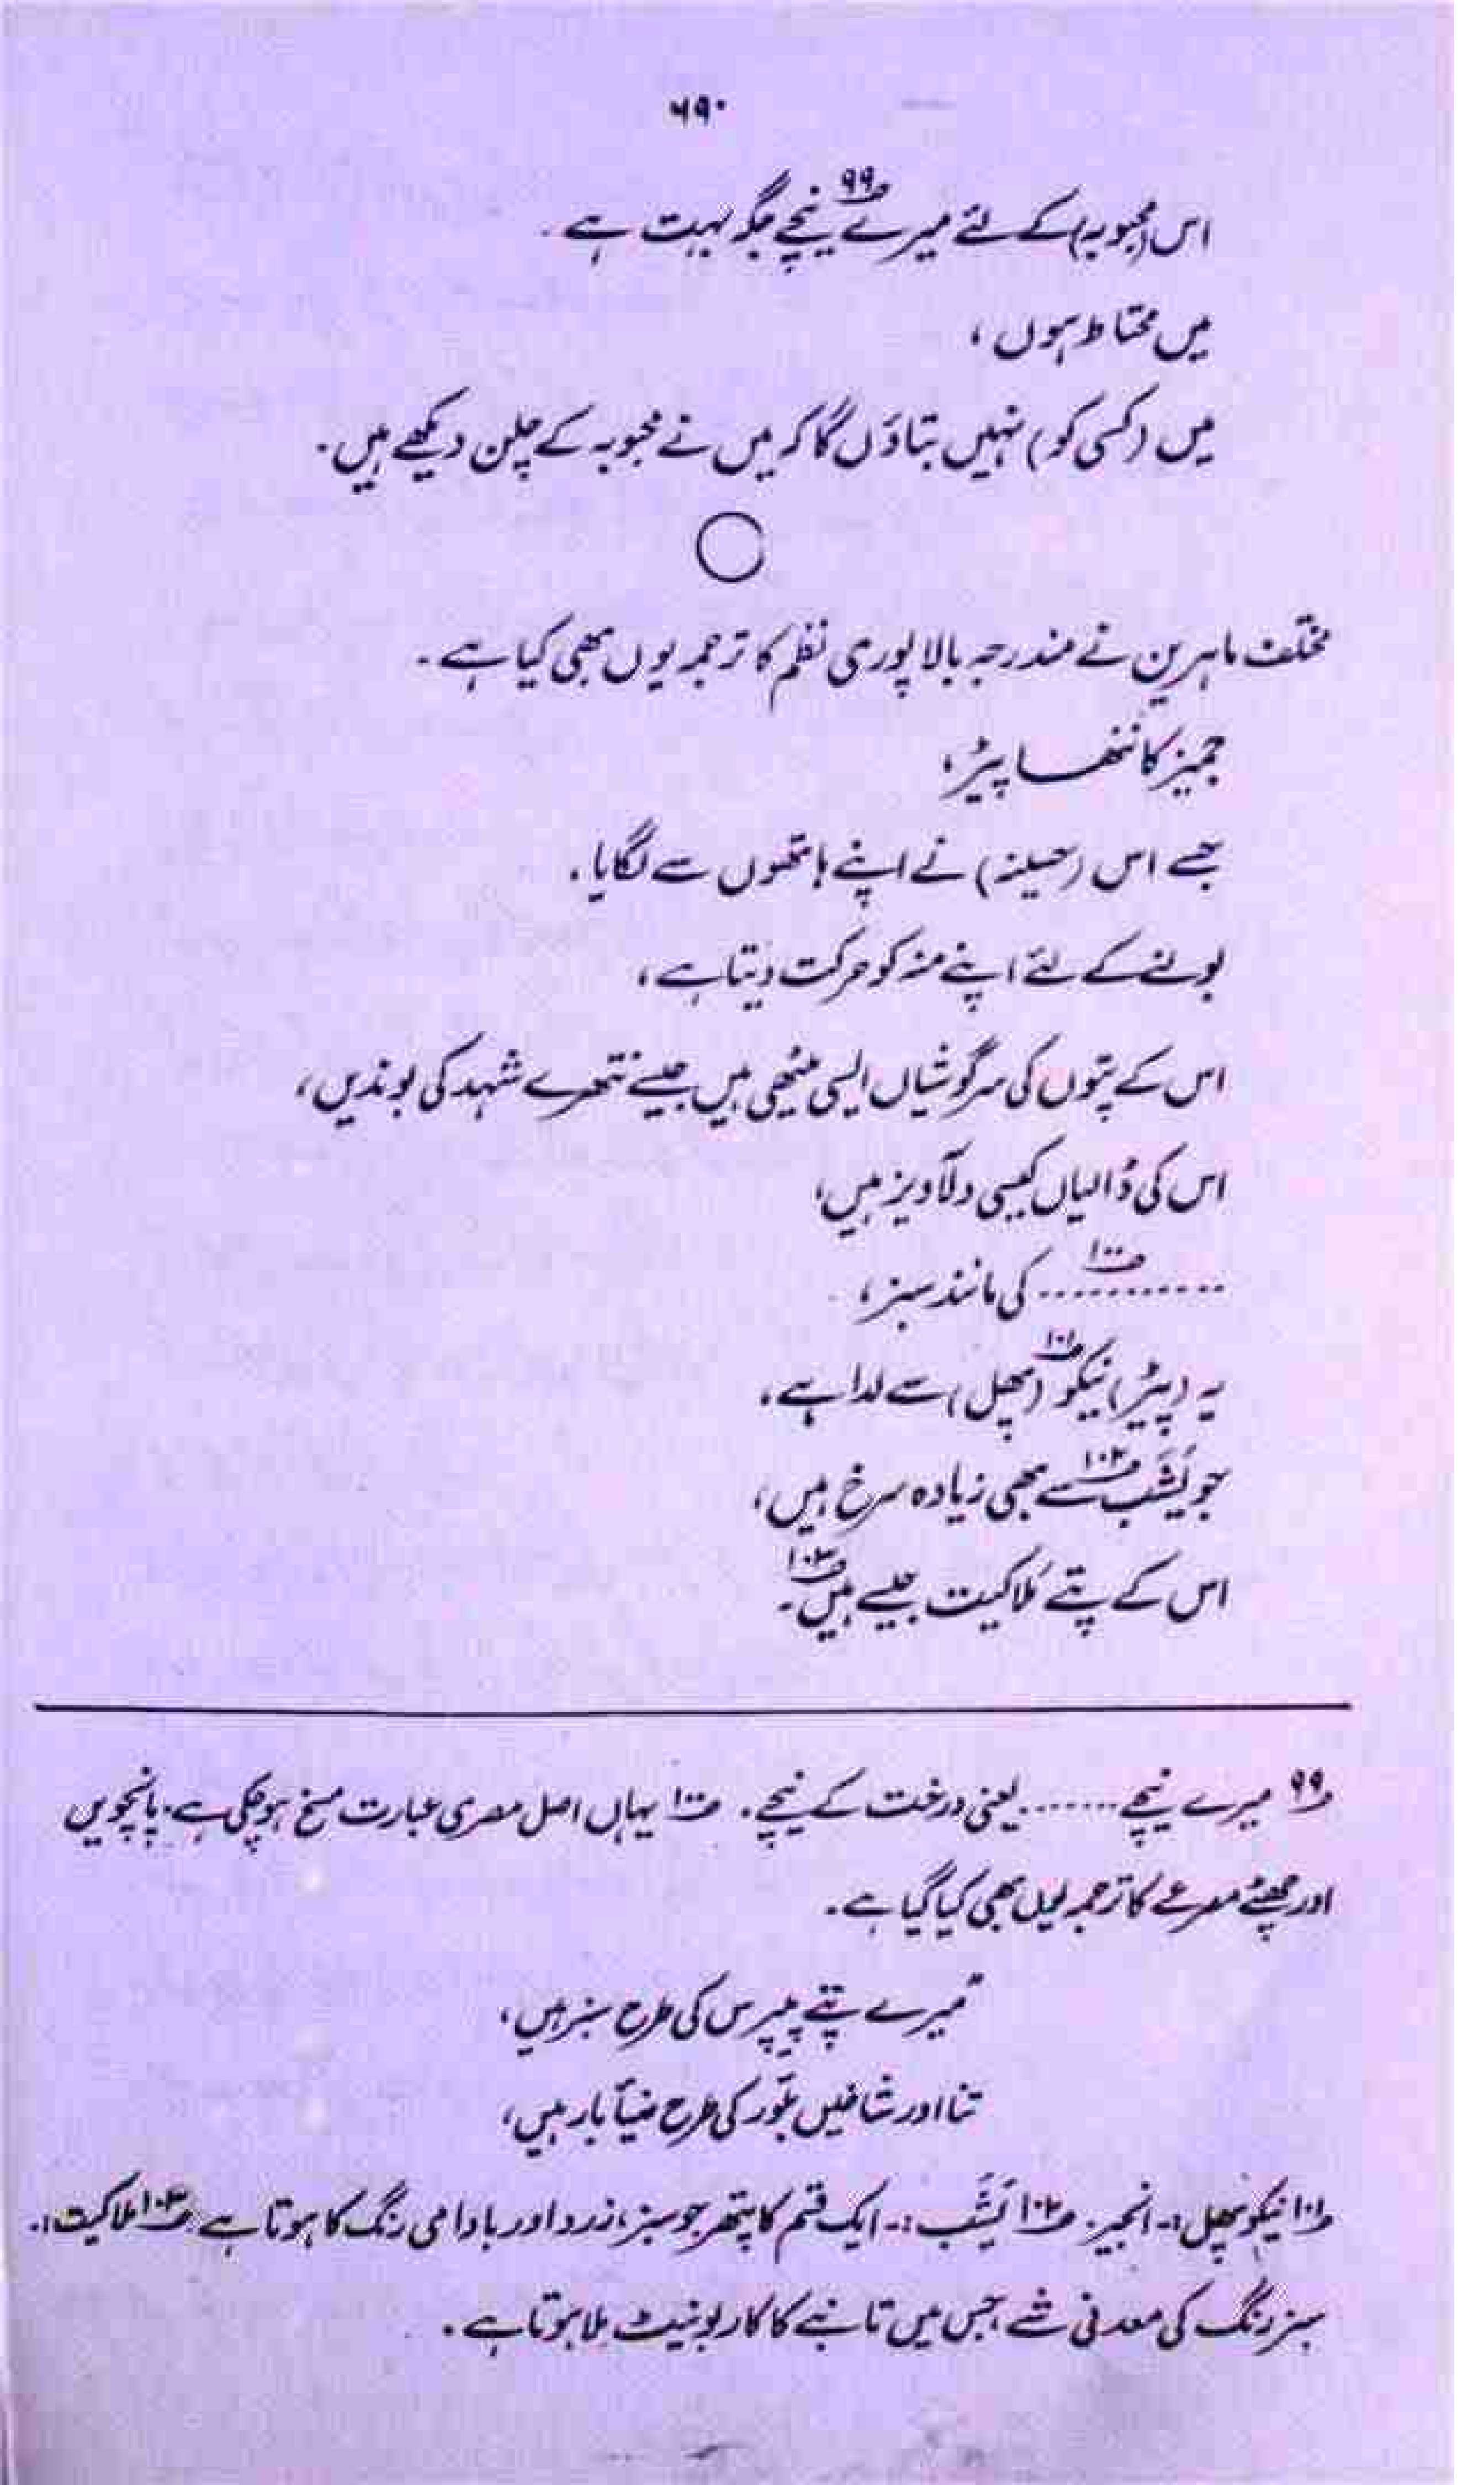 ۶۹۰
اس (محبوبہ) کے لئے میرے ؂۹۹ نیچے جگہ بہت ہے ۔
میں محتاط ہوں ،
میں (کسی کو) نہیں بتاؤں گا کہ میں نے محبوبہ کے چلن دیکھے ہیں ۔
مختلف ماہرین نے مندرجہ بالا پوری نظم کا ترجمہ یوں بھی کیا ہے ۔
جمیز کا ننھا سا پیڑ ،
جسے اس (حسینہ) نے اپنے ہاتھوں سے لگایا ،
بولنے کے لئے اپنے منہ کو حرکت دیتا ہے ،
اس کے پتوں کی سرگوشیاں ایسی میٹھی ہیں جیسے نتھرے شہد کی بوندیں ،
اس کی ڈالیاں کیسی دلآویز ہیں ،
........... ؂۱۰۰ کی مانند سبز ،
یہ (پیڑ) نیکو ؂۱۰۱ (پھل) سے لدا ہے ،
جو یَشَب ؂۱۰۲ سے بھی زیادہ سرخ ہیں ،
اس کے پتے مَلاکیت جیسے ہیں ؂۱۰۳ ۔
؂۹۹ میرے نیچے ....... یعنی درخت کے نیچے ۔ ؂۱۰۰ یہاں اصل مصری عبارت مسخ ہو چکی ہے ۔ پانچویں
اور چھٹے مصرعے کا ترجمہ یوں بھی کیا گیا ہے ۔
"میرے پتے پیپرس کی طرح سبز ہیں ،
تنا اور شاخیں بلّور کی طرح ضیأ بار ہیں ،
؂۱۰۱ نیکو پھل :۔ انجیر ۔ ؂۱۰۲ یَشَب :۔ ایک قسم کا پتھر جو سبز ، زرد اور بادامی رنگ کا ہوتا ہے ؂۱۰۳ ملاکیت :۔
سبز رنگ کی معدنی شے جس میں تانبے کا کاربونیٹ ملا ہوتا ہے ۔